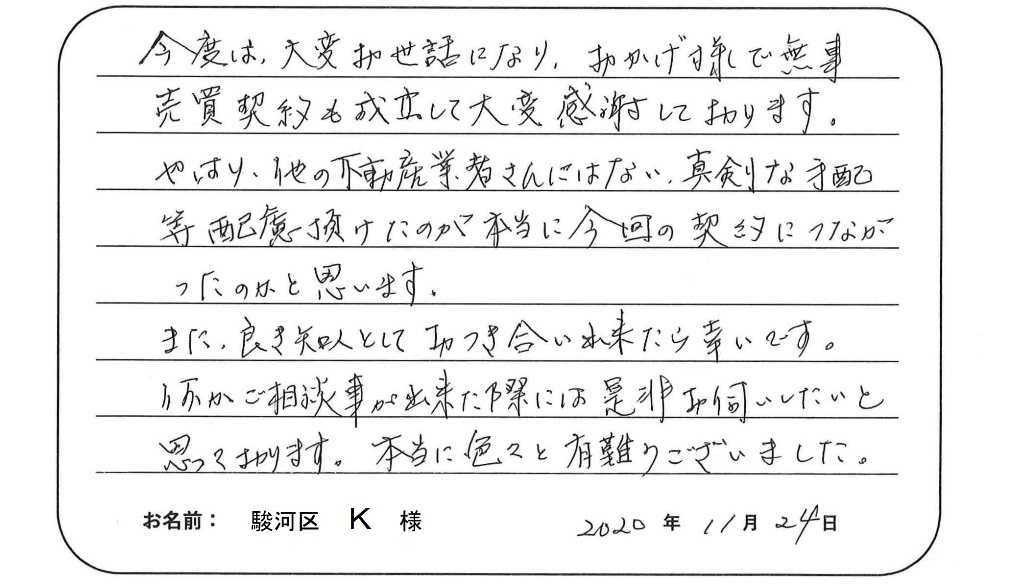 今度は、大変お世話になり、おかげ様で無事
売買契約も成立して大変感謝して おります。
やはり、他の不動産業者さんにはない、真剣な手配
等配慮頂けたのが本当に今回の契約につなが
ったのかと思います。
また、良き知人としてお付き合い出来たら幸いです。
何かご相談事が出来た際には是非お伺いしたいと
思っております。本当に色々と有難うございました。
お名前: 駿河区 K 様 2020 年 11月 24日